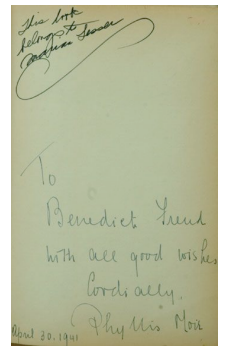 This book
belongs to
Lesser
To
Benedict Freud
with all good wishes,
Cordially,
Phyllis Moir
April 30, 1941